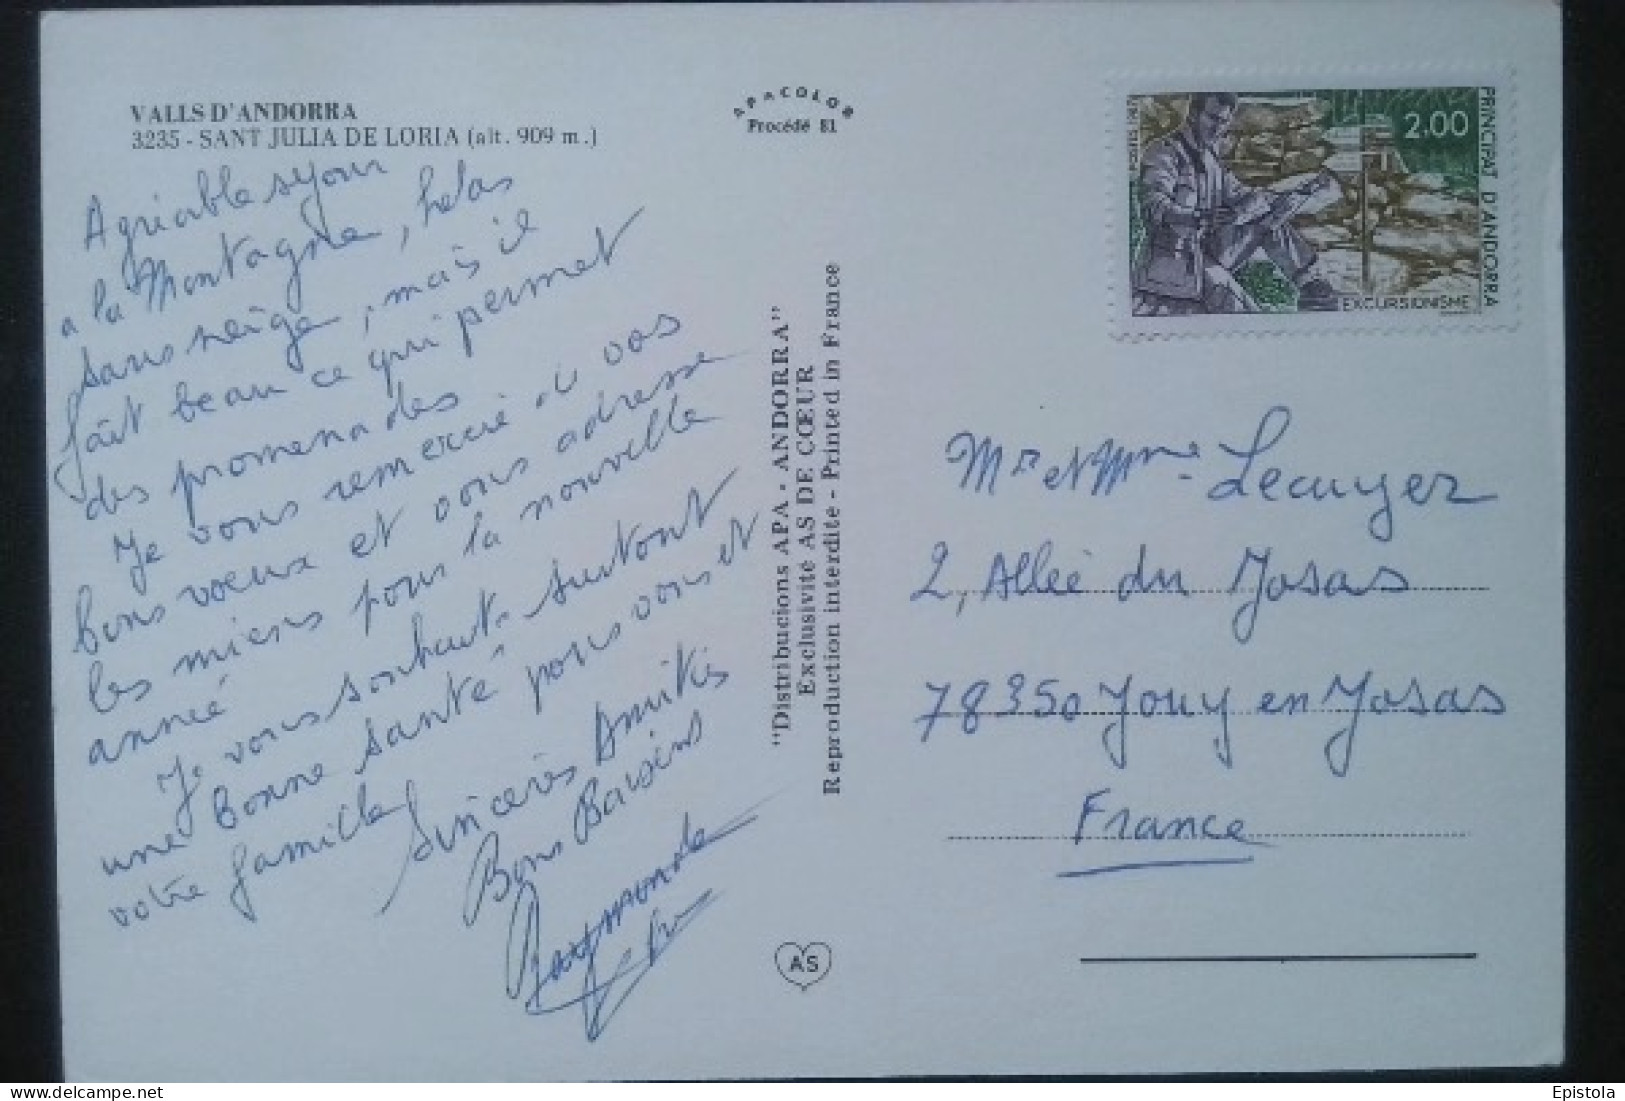 VALLS D'ANDORRA
3235 - SANT JULIA DE LORIA (alt. 909 m.)
Agréable sejour
a la Montagne, helas
sans neige, mais il
fait beau ce qui permet
des promenades
Je vous remercie de vos
bons voeux et vous adresse
les miens pour la nouvelle
année
Je vous souhaite surtout
une bonne santé pour vous et
votre famille
Sincères Amitiés
Bons Baisers
Raymonde
APACOLOR
Procédé 81
"Distribucions APA - ANDORRA"
Exclusivité AS DE CŒUR
Reproduction interdite - Printed in France
AS
POSTES 1987
2.00
PRINCIPAT D'ANDORRA
EXCURSIONISME
Mr et Mme Lecuyer
2, Allée du Josas
78350 Jouy en Josas
France
Epistola